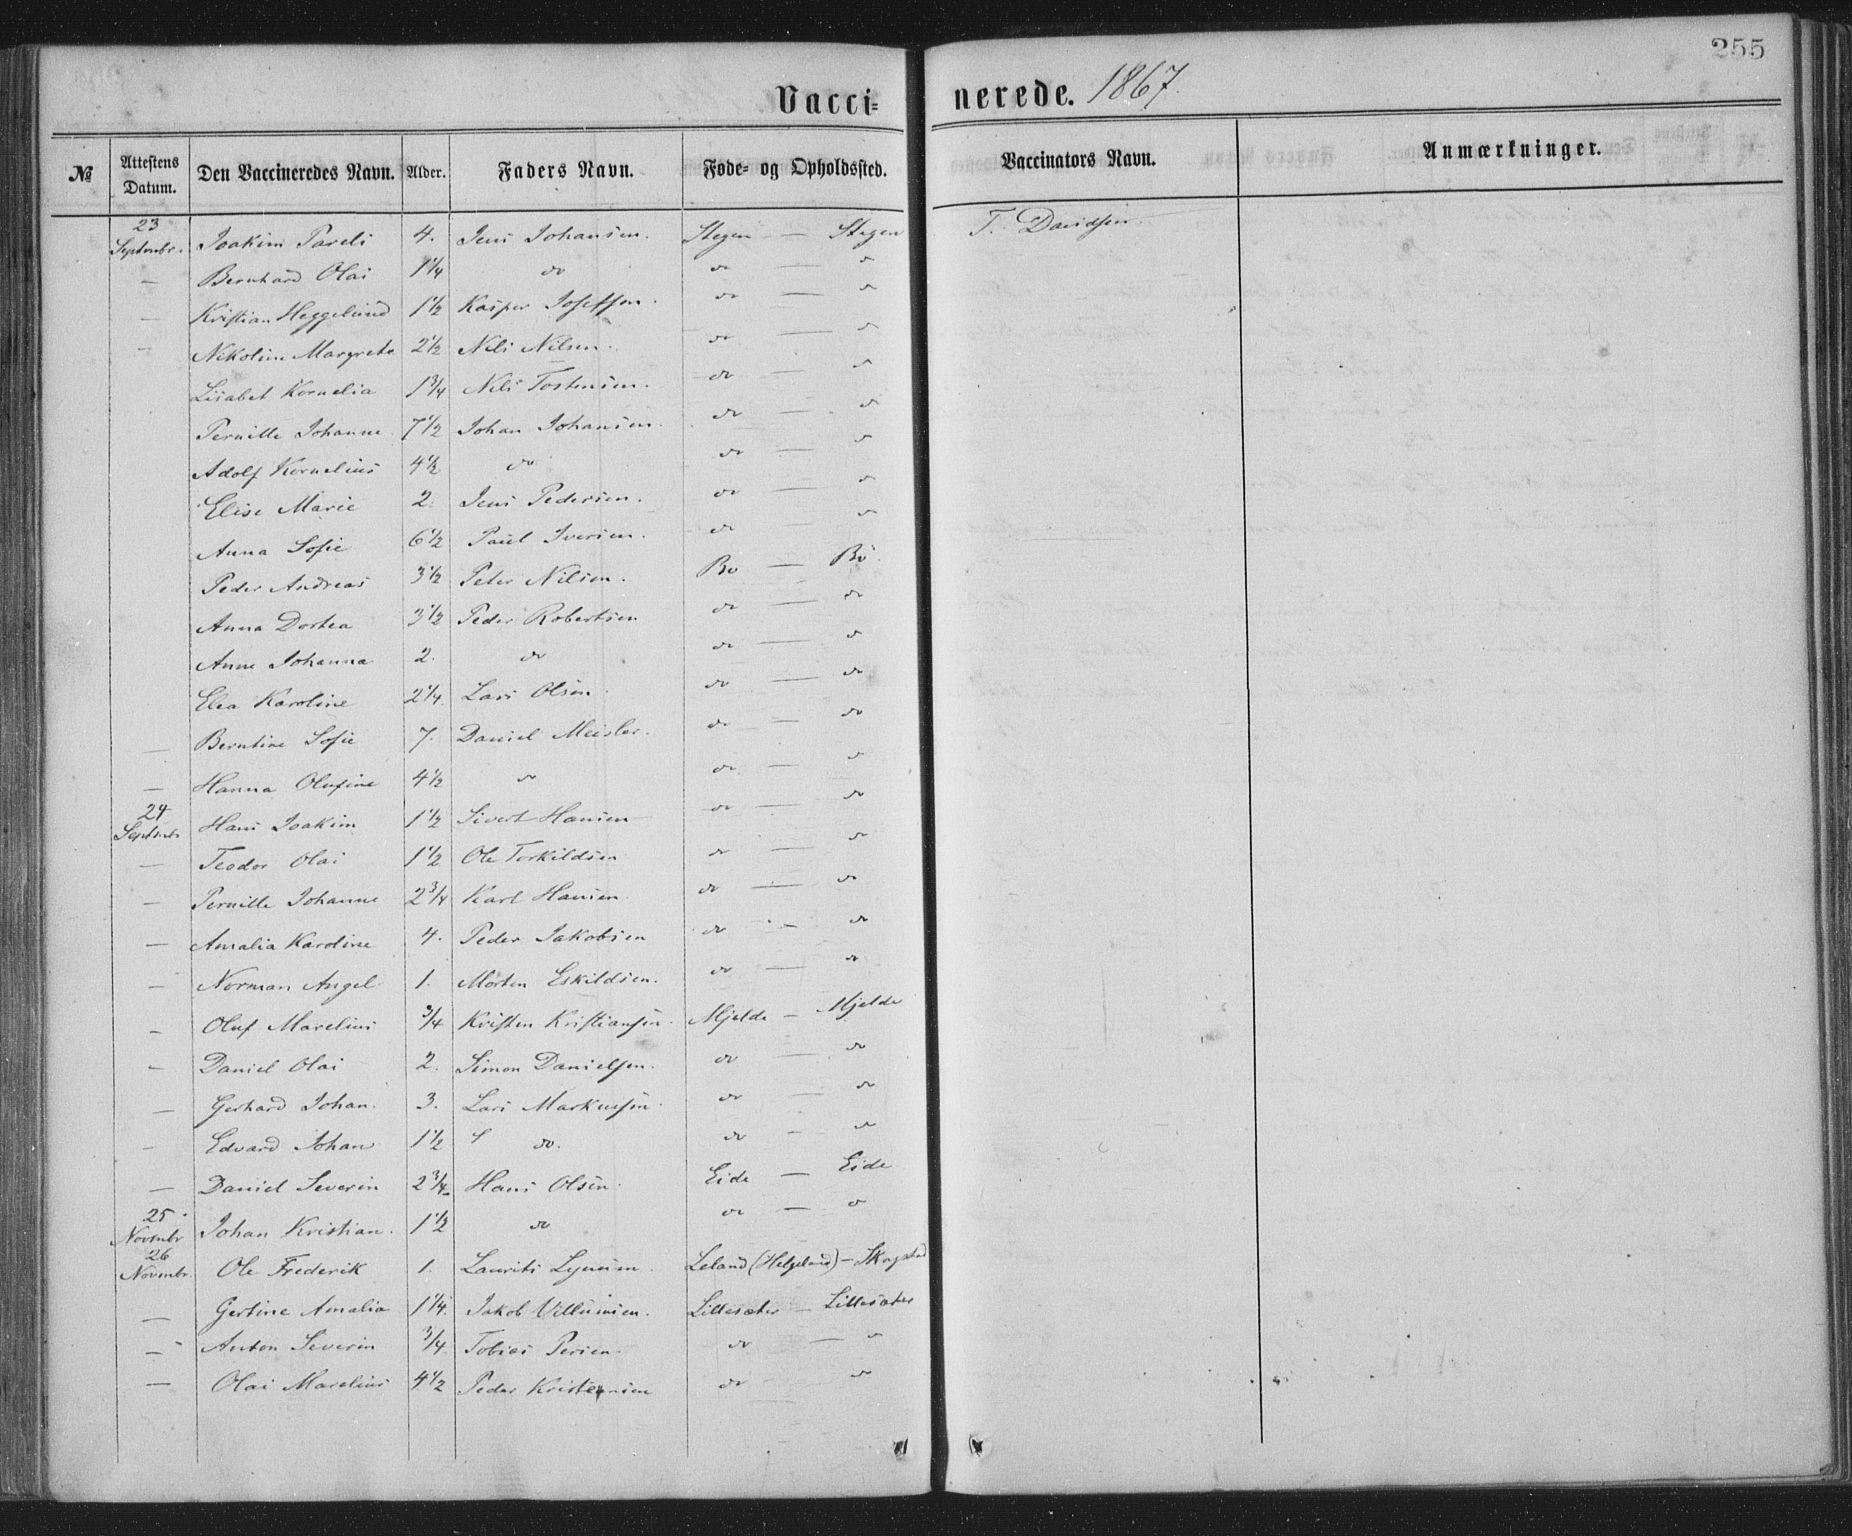 255
Vacci= nerede. 1867.
№ Attestens Datum. Den Vaccineredes Navn. Alder. Faders Navn. Føde= og Opholdssted. Vaccinators Navn. Anmærkninger.
23 Septembr. Joakim Pareli 4. Jens Johansen. Stegen — Stegen T. Davidsen
— Bernhard Olai 1 1/4 do do — do
— Kristian Heggelund 1 1/2 Kasper Josefsen. do — do
— Nikoline Margrete 2 1/2 Nils Nilsen. do — do
Lisabet Kornelia 1 3/4 Nils Tostensen. do — do
Pernille Johanne 7 1/2 Johan Johansen. do — do
Adolf Kornelius 4 1/2 do do — do
Elise Marie 2. Jens Pedersen. do — do
Anna Sofie 6 1/2 Paul Iversen. do — do
Peder Andreas 3 1/2 Peter Nilsen. Bø — Bø
Anna Dortea 3 1/2 Peder Robertsen do — do
Anne Johanna 2. do do — do
Elea Karoline 2 1/4 Lars Olsen. do — do
— Berntine Sofie 7. Daniel Meisler. do — do
— Hanna Olufine 4 1/2 do do — do
24 Septmbr Hans Joakim 1 1/2 Sivert Hansen do — do
— Teodor Olai 1 1/2 Ole Torkildsen do — do
— Pernille Johanne 2 3/4 Karl Hansen. do — do
— Amalia Karoline 4. Peder Jakobsen do — do
— Norman Angel 1. Morten Eskildsen. do — do
— Oluf Marelius 3/4 Kristen Kristiansen. Mjelde — Mjelde
— Daniel Olai 2. Simon Danielsen. do — do
— Gerhard Johan. 3. Lars Markussen. do — do
— Edvard Johan 1 1/2 do. do — do
— Daniel Severin 2 3/4 Hans Olsen. Eide — Eide
25 Novmbr Johan Kristian. 1 1/2 do do — do
26 Novmbr. Ole Frederik 1. Laurits (Helgeland) —
— Gertine Amalia 1 1/4. Jakob Villumsen. Lillesæter — Lillesæter
— Anton Severin 3/4 Tobias Persen. do — do
— Olai Marelius 4 1/2 Peder Kristensen do do